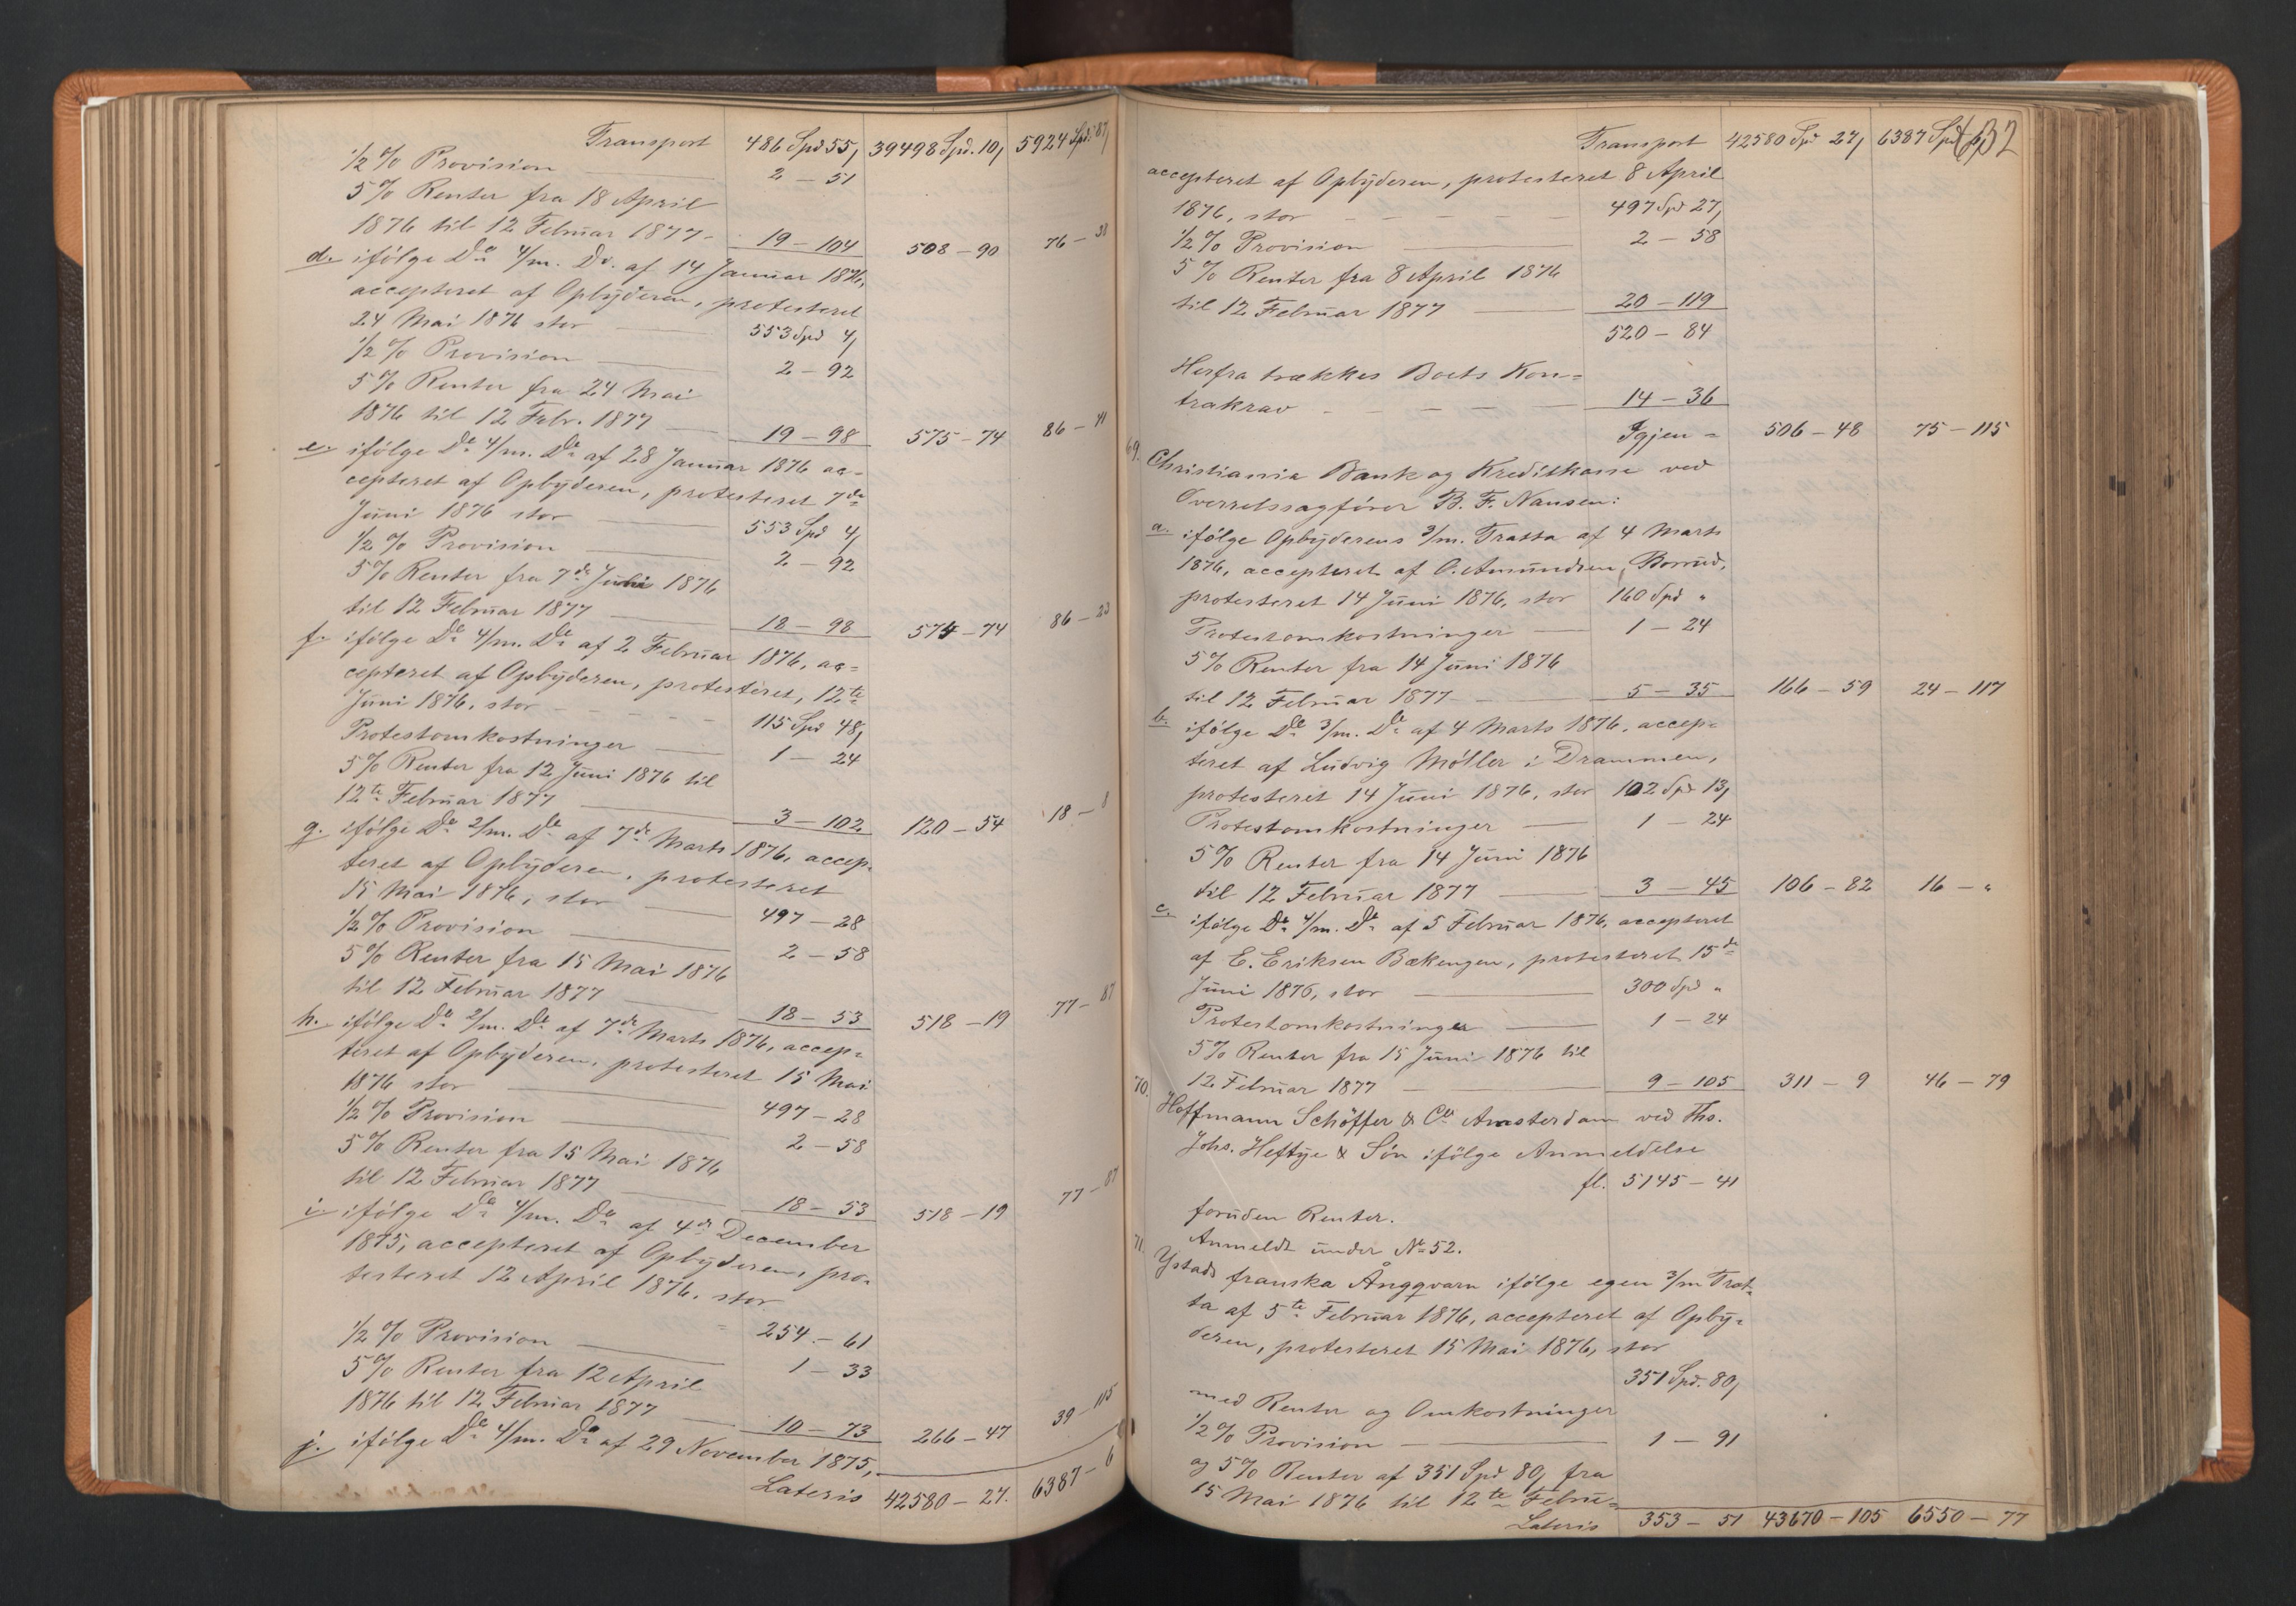 Transport 486 Spd 55, 39498 Spd. 10, 5924 Spd. 87,
1/2 % Provision 2 - 51
5 % Renter fra 18 April
1876 til 12 Februar 1877 - 19 - 104 508 - 90 76 - 38
d. ifølge Do 4/m. Do. af 14 Januar 1876,
accepteret af Opbyderen, protesteret
24 Mai 1876 stor 553 Spd 4,
1/2 % Provision 2 - 92
5 % Renter fra 24 Mai
1876 til 12 Febr. 1877 19 - 98 575 - 74 86 - 41
e. ifølge Do 4/m. Do af 28 Januar 1876 ac=
cepteret af Opbyderen, protesteret 7de
Juni 1876 stor 553 Spd 4,
1/2 % Provision 2 - 92
5 % Renter fra 7de Juni 1876
til 12 Februar 1877 18 - 98 574 - 74 86 - 23
f. ifølge Do 4/m. Do af 2 Februar 1876, ac=
cepteret af Opbyderen, protesteret, 12te
Juni 1876, stor 115 Spd 48,
Protestomkostninger 1 - 24
5 % Renter fra 12 Juni 1876 til
12te Februar 1877 3 - 102 120 - 54 18 - 8
g. ifølge Do 2/m. Do af 7de Marts 1876, accep=
teret af Opbyderen, protesteret
15 Mai 1876, stor 497 - 28
1/2 % Provision 2 - 58
5 % Renter fra 15 Mai 1876
til 12 Februar 1877 18 - 53 518 - 19 77 - 87
h. ifølge Do 2/m. Do af 7de Marts 1876, accep=
teret af Opbyderen, protesteret 15 Mai
1876 stor 497 - 28
1/2 % Provision 2 - 58
5 % Renter fra 15 Mai 1876
til 12 Februar 1877 18 - 53 518 - 19 77 - 87
i. ifølge Do 4/m. Do af 4de December
1875, accepteret af Opbyderen, pro=
testeret 12 April 1876, stor
254 - 61
1/2 % Provision 1 - 33
5 % Renter fra 12 April
1876 til 12 Februar 1877 10 - 73 266 - 47 39 - 115
j. ifølge Do 4/m. Do af 29 November 1875,
Lateris 42580 - 27. 6387 - 6
Transport 42580 Spd 27, 6387 Spd 6, 632
accepteret af Opbyderen, protesteret 8 April
1876, stor 497 Spd 27,
1/2 % Provision 2 - 58
5 % Renter fra 8 April 1876
til 12 Februar 1877 20 - 119
520 - 84
Herfra trækkes Boets Kon=
trakrav 14 - 36
Igjen = 506 - 48 75 - 115
69. Christiania Bank og Kreditkasse ved
Overretssagfører B. F. Nansen:
a. ifølge Opbyderens 3/m. Tratta af 4 Marts
1876, accepteret af O. Amundsen, Borrud,
protesteret 14 Juni 1876, stor 160 Spd "
Protestomkostninger 1 - 24
5 % Renter fra 14 Juni 1876
til 12 Februar 1877 5 - 35 166 - 59 24 - 117
b. ifølge Do 3/m. Do af 4 Marts 1876, accep=
teret af Ludvig Møller i Drammen,
protesteret 14 Juni 1876, stor 102 Spd 13,
Protestomkostninger 1 - 24
5 % Renter fra 14 Juni 1876
til 12 Februar 1877 3 - 45 106 - 82 16 - "
c. ifølge Do 4/m. Do af 5 Februar 1876, accepteret
af E. Eriksen Bækengen, protesteret 15de
Juni 1876, stor 300 Spd "
Protestomkostninger 1 - 24
5 % Renter fra 15 Juni 1876 til
12 Februar 1877 9 - 105 311 - 9 46 - 79
70. Hoffmann Schöffer & Co Amsterdam ved Ths.
Johs. Heftye & Søn ifølge Anmeldelse
fl. 5145 - 41
foruden Renter.
Anmeldt under No 52.
71. Ystads franska Ångqvarn ifølge egen 3/m Trat=
ta af 5te Februar 1876, accepteret af Opby=
deren, protesteret 15 Mai 1876, stor
351 Spd. 80,
med Renter og Omkostninger
1/2 % Provision 1 - 91
og 5 % Renter af 351 Spd 80, fra
15 Mai 1876 til 12te Febru=
Lateris 353 - 51 43670 - 105 6550 - 77